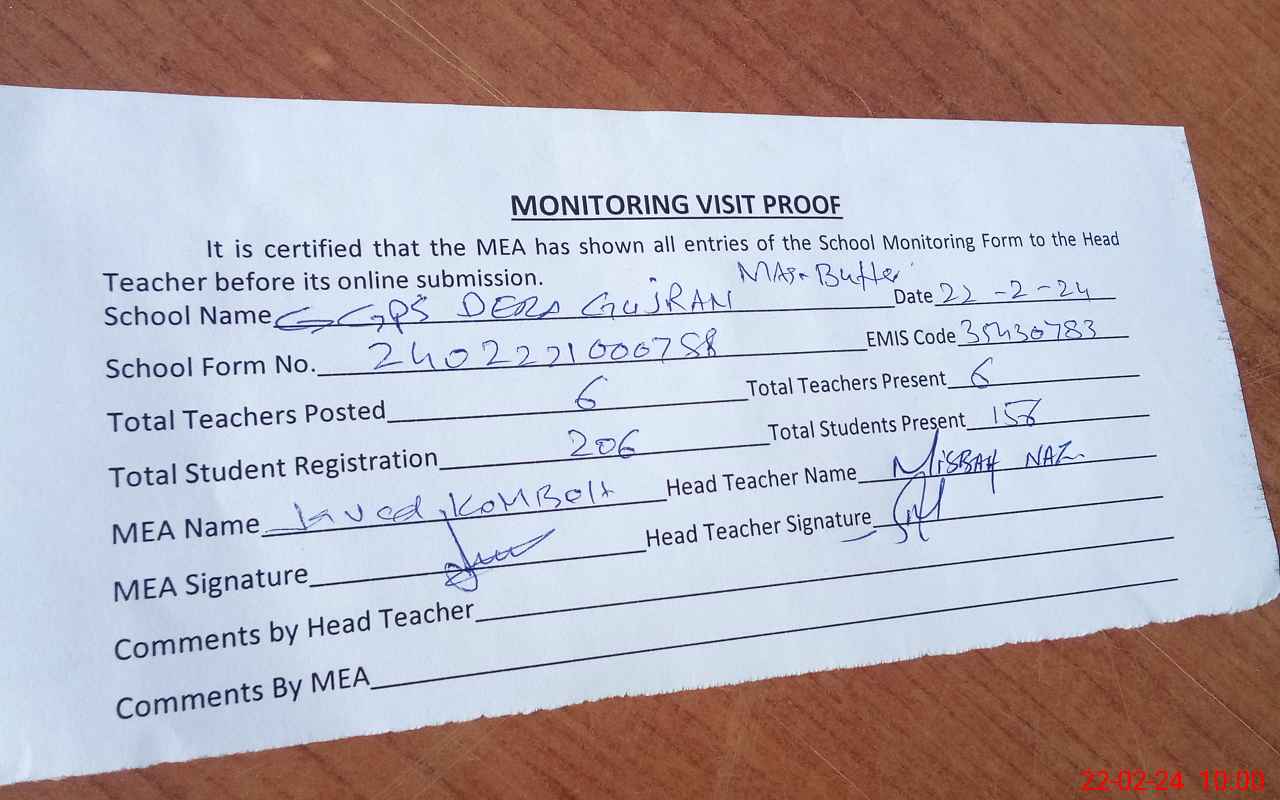 MONITORING VISIT PROOF
It is certified that the MEA has shown all entries of the School Monitoring Form to the Head
Teacher before its online submission.
School Name GGPS DERA GUJRAN Date 22-2-24
School Form No. 2402221000788 EMIS Code 35430783
Total Teachers Posted 6 Total Teachers Present 6
Total Student Registration 206 Total Students Present 158
MEA Name Javed Head Teacher Name MISBAH NAZ
MEA Signature Head Teacher Signature
Comments by Head Teacher
Comments By MEA
22-02-24 10:00